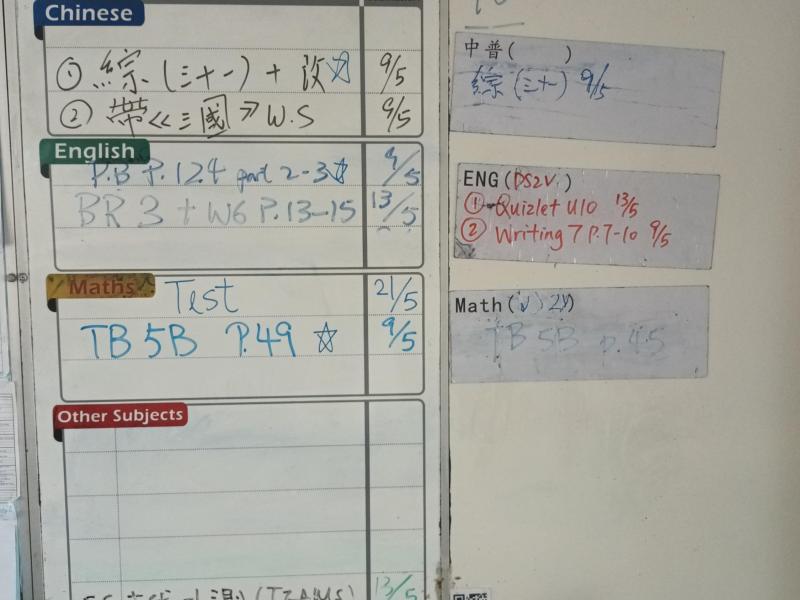 Chinese
① 綜(三十一) + 改☆ 9/5
② 帶《三國》W.S 9/5
English
P.B P.124 part 2-3☆ 9/5
BR 3 + W6 P.13-15 13/5
Maths
Test 21/5
TB 5B P.49 ☆ 9/5
Other Subjects
(TSAMS) 13/5
中普( )
綜(三十) 9/5
ENG(DS2V.)
① Quizlet U10 13/5
② Writing 7 P.7-10 9/5
Math(√)
TB 5B P.45